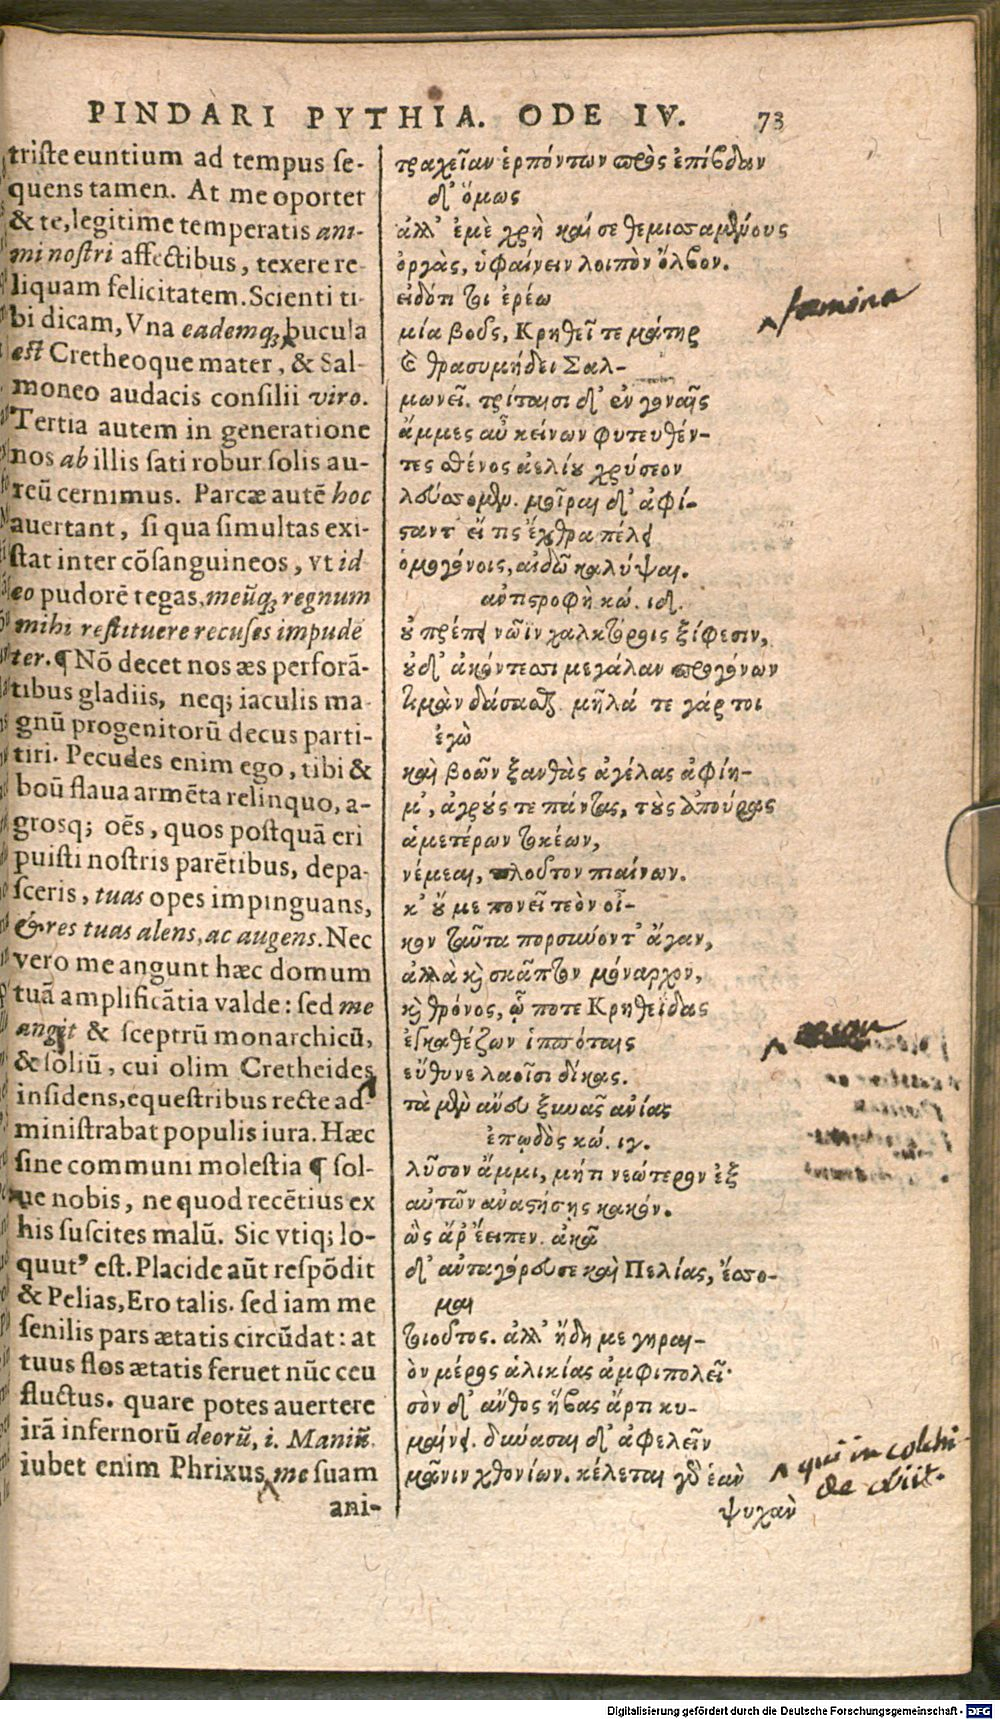 PINDARI PYTHIA. ODE IV. 73
triste euntium ad tempus se-
quens tamen. At me oportet
& te, legitime temperatis ani-
mi nostri affectibus, texere re-
liquam felicitatem. Scienti ti-
bi dicam, Vna eademq; bucula
est Cretheoque mater, & Sal-
moneo audacis consilii viro.
Tertia autem in generatione
nos ab illis sati robur solis au-
reũ cernimus. Parcæ autẽ hoc
auertant, si qua simultas exi-
stat inter cõsanguineos, vt id
eo pudorẽ tegas, meũq; regnum
mihi restituere recuses impudẽ
ter. ¶ Nõ decet nos æs perforã-
tibus gladiis, neq; iaculis ma-
gnũ progenitorũ decus parti-
tiri. Pecudes enim ego, tibi &
boũ flaua armẽta relinquo, a-
grosq; oẽs, quos postquã eri
puisti nostris parẽtibus, depa-
sceris, tuas opes impinguans,
& res tuas alens, ac augens. Nec
vero me angunt hæc domum
tuã amplificãtia valde: sed me
angit & sceptrũ monarchicũ,
& soliũ, cui olim Cretheides
insidens, equestribus recte ad-
ministrabat populis iura. Hæc
sine communi molestia ¶ sol-
ue nobis, ne quod recẽtius ex
his suscites malũ. Sic vtiq; lo-
quut' est. Placide aũt respõdit
& Pelias, Ero talis. sed iam me
senilis pars ætatis circũdat: at
tuus flos ætatis feruet nũc ceu
fluctus. quare potes auertere
irã infernorũ deorũ, i. Maniũ.
iubet enim Phrixus me suam
ani-
τραχεῖαν ἑρπόντων πρὸς ἐπίβδαν
δ' ὅμως
ἀλλ' ἐμὲ χρὴ καί σε θεμισσαμένους
ὀργὰς, ὑφαίνειν λοιπὸν ὄλβον.
εἰδότι τοι ἐρέω
μία βοῦς, Κρηθεῖ τε μάτηρ
καὶ θρασυμήδει Σαλ-
μωνεῖ. τρίταισι δ' ἐν γοναῖς
ἄμμες αὖ κείνων φυτευθέν-
τες σθένος ἀελίου χρύσεον
λεύσσομεν. μοῖραι δ' ἀφί-
σταντ' εἴ τις ἔχθρα πέλει
ὁμογόνοις, αἰδῶ καλύψαι.
ἀντιστροφὴ κώ. ιδ.
οὐ πρέπει νῶϊν χαλκοτόροις ξίφεσιν,
οὐδ' ἀκόντεσσι μεγάλαν προγόνων
τιμὰν δάσασθαι. μῆλά τε γάρ τοι
ἐγὼ
καὶ βοῶν ξανθὰς ἀγέλας ἀφίη-
μ', ἀγρούς τε πάντας, τοὺς ἀπούρας
ἁμετέρων τοκέων,
νέμεαι, πλοῦτον πιαίνων.
κ' οὔ με πονεῖ τεὸν οἶ-
κον ταῦτα πορσύνοντ' ἄγαν,
ἀλλὰ καὶ σκᾶπτον μόναρχον,
καὶ θρόνος, ᾧ ποτε Κρηθεΐδας
ἐγκαθέζων ἱππόταις
εὔθυνε λαοῖσι δίκας.
τὰ μὲν ἄνευ ξυνᾶς ἀνίας
ἐπῳδὸς κώ. ιγ.
λῦσον ἄμμι, μή τι νεώτερον ἐξ
αὐτῶν ἀναστήσῃς κακόν.
ὣς ἄρ' ἔειπεν. ἀκᾶ
δ' ἀνταγόρευσε καὶ Πελίας, ἔσσο-
μαι
τοιοῦτος. ἀλλ' ἤδη με γηραι-
ὸν μέρος ἁλικίας ἀμφιπολεῖ·
σὸν δ' ἄνθος ἥβας ἄρτι κυ-
μαίνει. δύνασαι δ' ἀφελεῖν
μᾶνιν χθονίων. κέλεται γὰρ ἑὰν
ψυχὰν
fæmina
qui in colchi
de obiit.
Digitalisierung gefördert durch die Deutsche Forschungsgemeinschaft - DFG